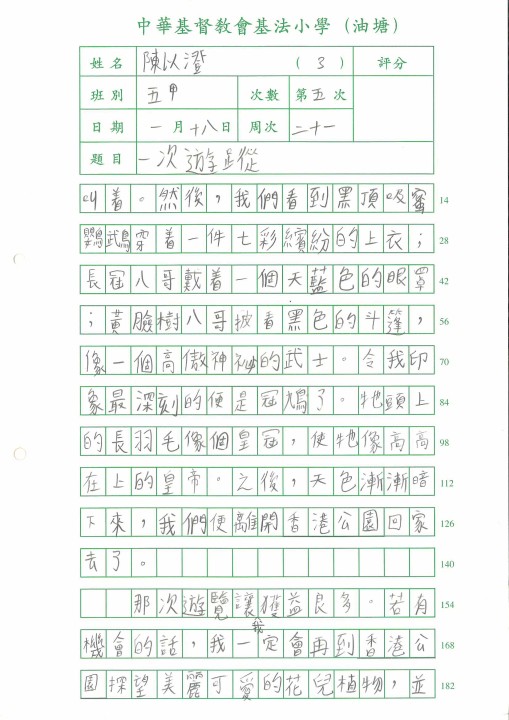 中華基督教會基法小學（油塘）
姓名 陳以澄 （3） 評分
班別 五甲 次數 第五次
日期 一月十八日 周次 二十一
題目 一次遊蹤
叫着。然後，我們看到黑頂吸蜜 14
鸚鵡穿着一件七彩繽紛的上衣； 28
長冠八哥戴着一個天藍色的眼罩 42
；黃臉樹八哥披着黑色的斗篷， 56
像一個高傲神祕的武士。令我印 70
象最深刻的便是冠鳩了。牠頭上 84
的長羽毛像個皇冠，使牠像高高 98
在上的皇帝。之後，天色漸漸暗 112
下來，我們便離開香港公園回家 126
去了。 140
那次遊覽讓我獲益良多。若有 154
機會的話，我一定會再到香港公 168
園探望美麗可愛的花兒植物，並 182